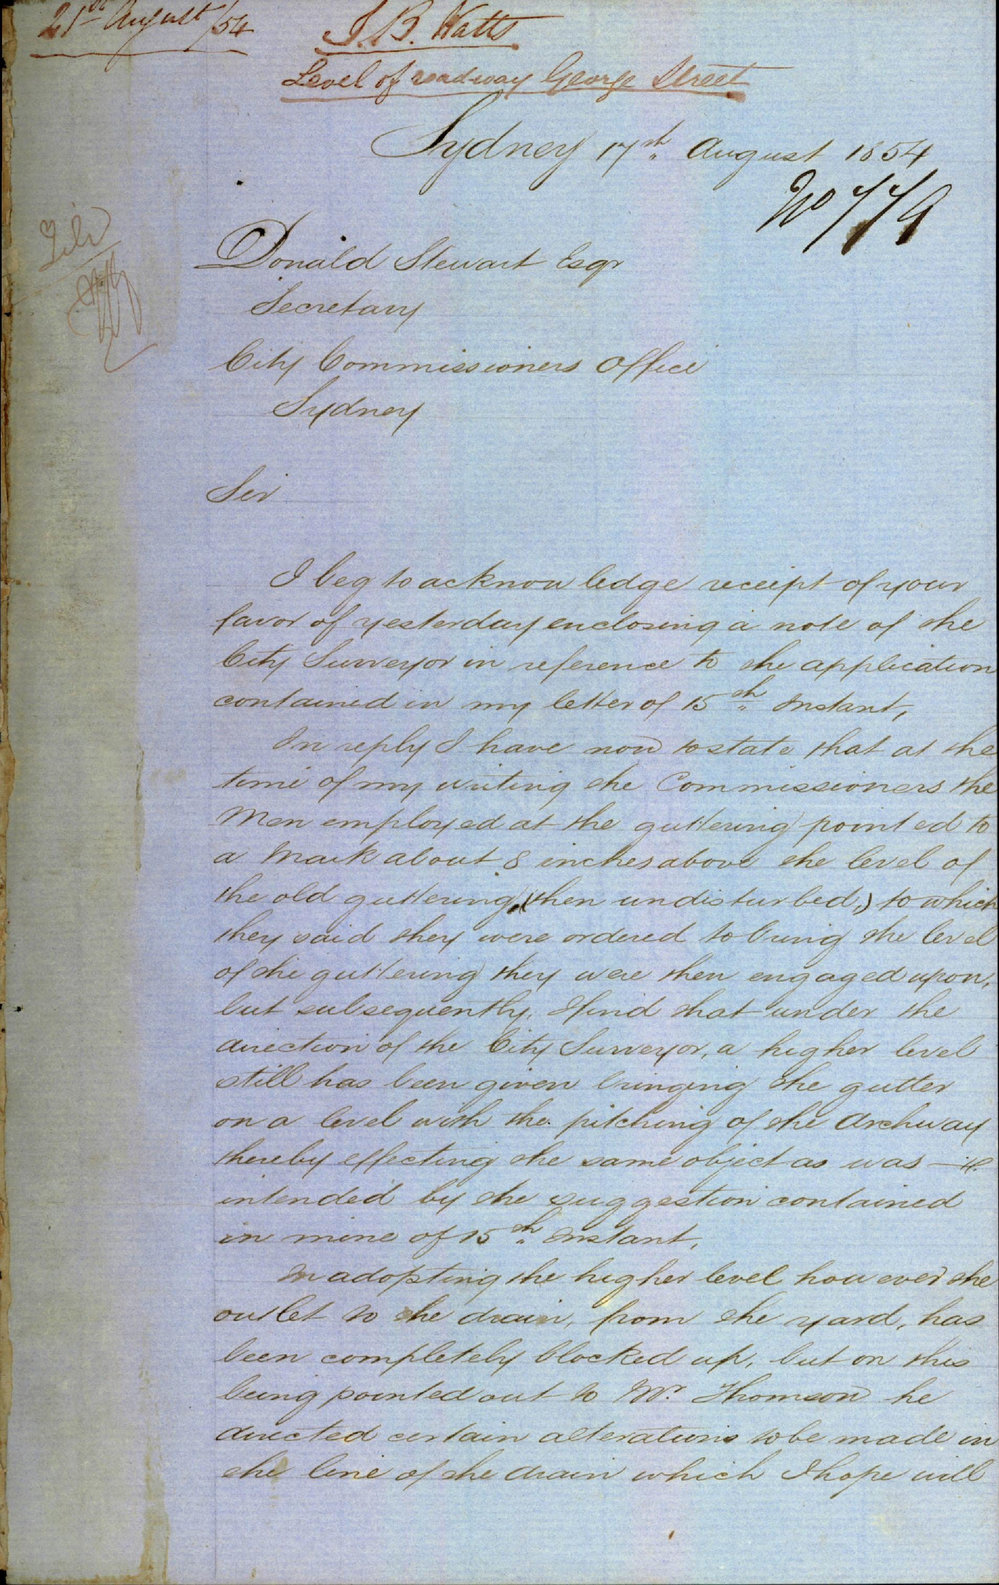 21st August /54
J. B. Watts
Level of roadway George Street
Sydney 17th August 1854
No 779
File
Donald Stewart Esqr
Secretary
City Commissioners Office
Sydney
Sir
I beg to acknowledge receipt of your
favor of yesterday enclosing a note of the
City Surveyor in reference to the application
contained in my letter of 15th Instant,
In reply I have now to state that at the
time of my writing the Commissioners the
Men employed at the guttering pointed to
a Mark about 8 inches above the level of
the old guttering, (then undisturbed,) to which
they said they were ordered to bring the level
of the guttering they were then engaged upon,
but subsequently, I find that under the
direction of the City Surveyor, a higher level
still has been given bringing the gutter
on a level with the pitching of the Archway
thereby effecting the same object as was
intended by the suggestion contained
in mine of 15th Instant,
In adopting the higher level however the
outlet to the drain, from the yard, has
been completely blocked up, but on this
being pointed out to Mr. Thomson he
directed certain alterations to be made in
the line of the drain which I hope will